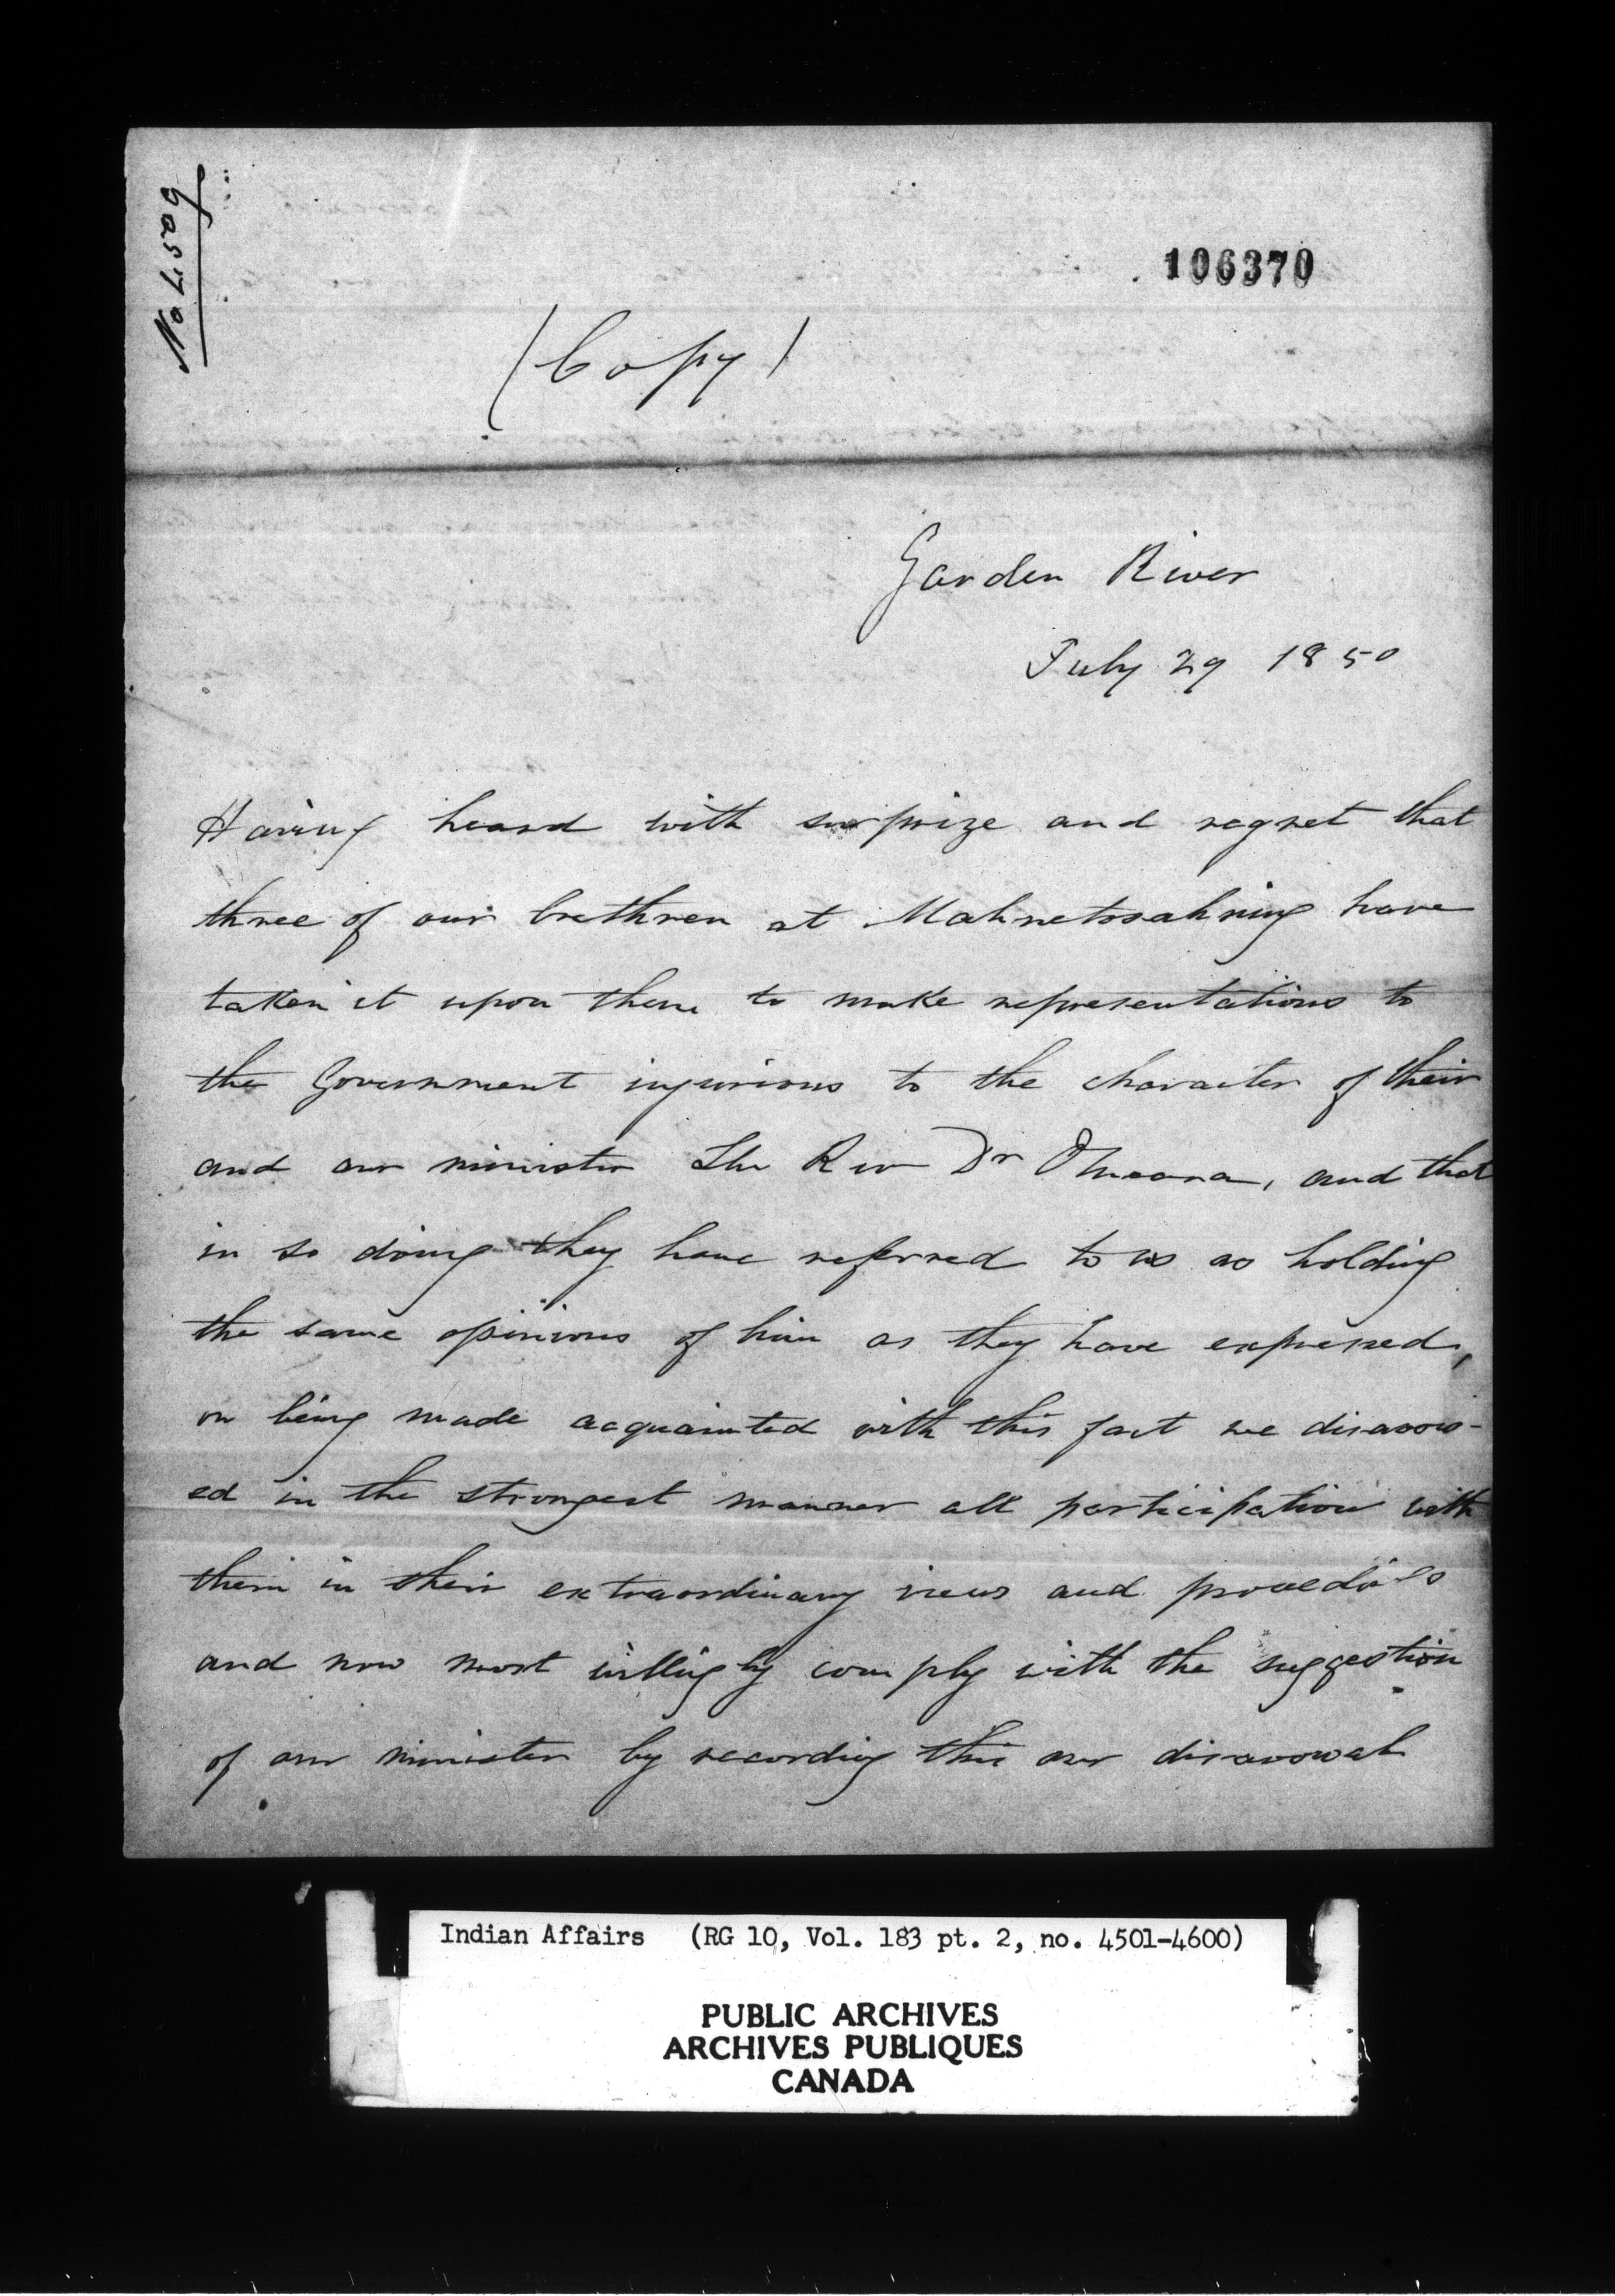 No 4509
106370
(Copy)
Garden River
July 29 1850
Having heard with surprize and regret that
three of our brethren at Mahnetooahning have
taken it upon them to make representations to
the Government injurious to the character of their
and our minister The Rev Dr OMeara, and that
in so doing they have referred to us as holding
the same opinions of him as they have expressed,
on being made acquainted with this fact we disavow-
ed in the strongest manner all participation with
them in their extraordinary views and
and now most willingly comply with the suggestion
of our minister by recording this our disavowal
Indian Affairs (RG 10, Vol. 183 pt. 2, no. 4501-4600)
PUBLIC ARCHIVES
ARCHIVES PUBLIQUES
CANADA